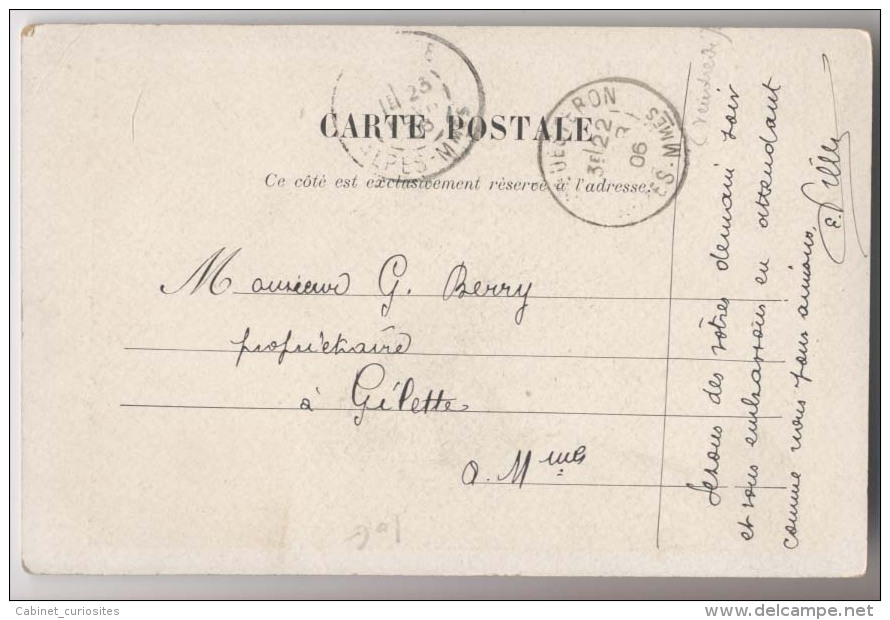 CARTE POSTALE
Ce côté est exclusivement réservé à l'adresse.
ALPES-MMES
23
3E/22
06
ES-MMES
Monsieur G. Berry
propriétaire
à Gilette
a. Mmes
Vendredi
Serons des vôtres demain soir
et vous embrassons en attendant
comme nous vous aimons.
Cabinet_curiosites
www.delcampe.net